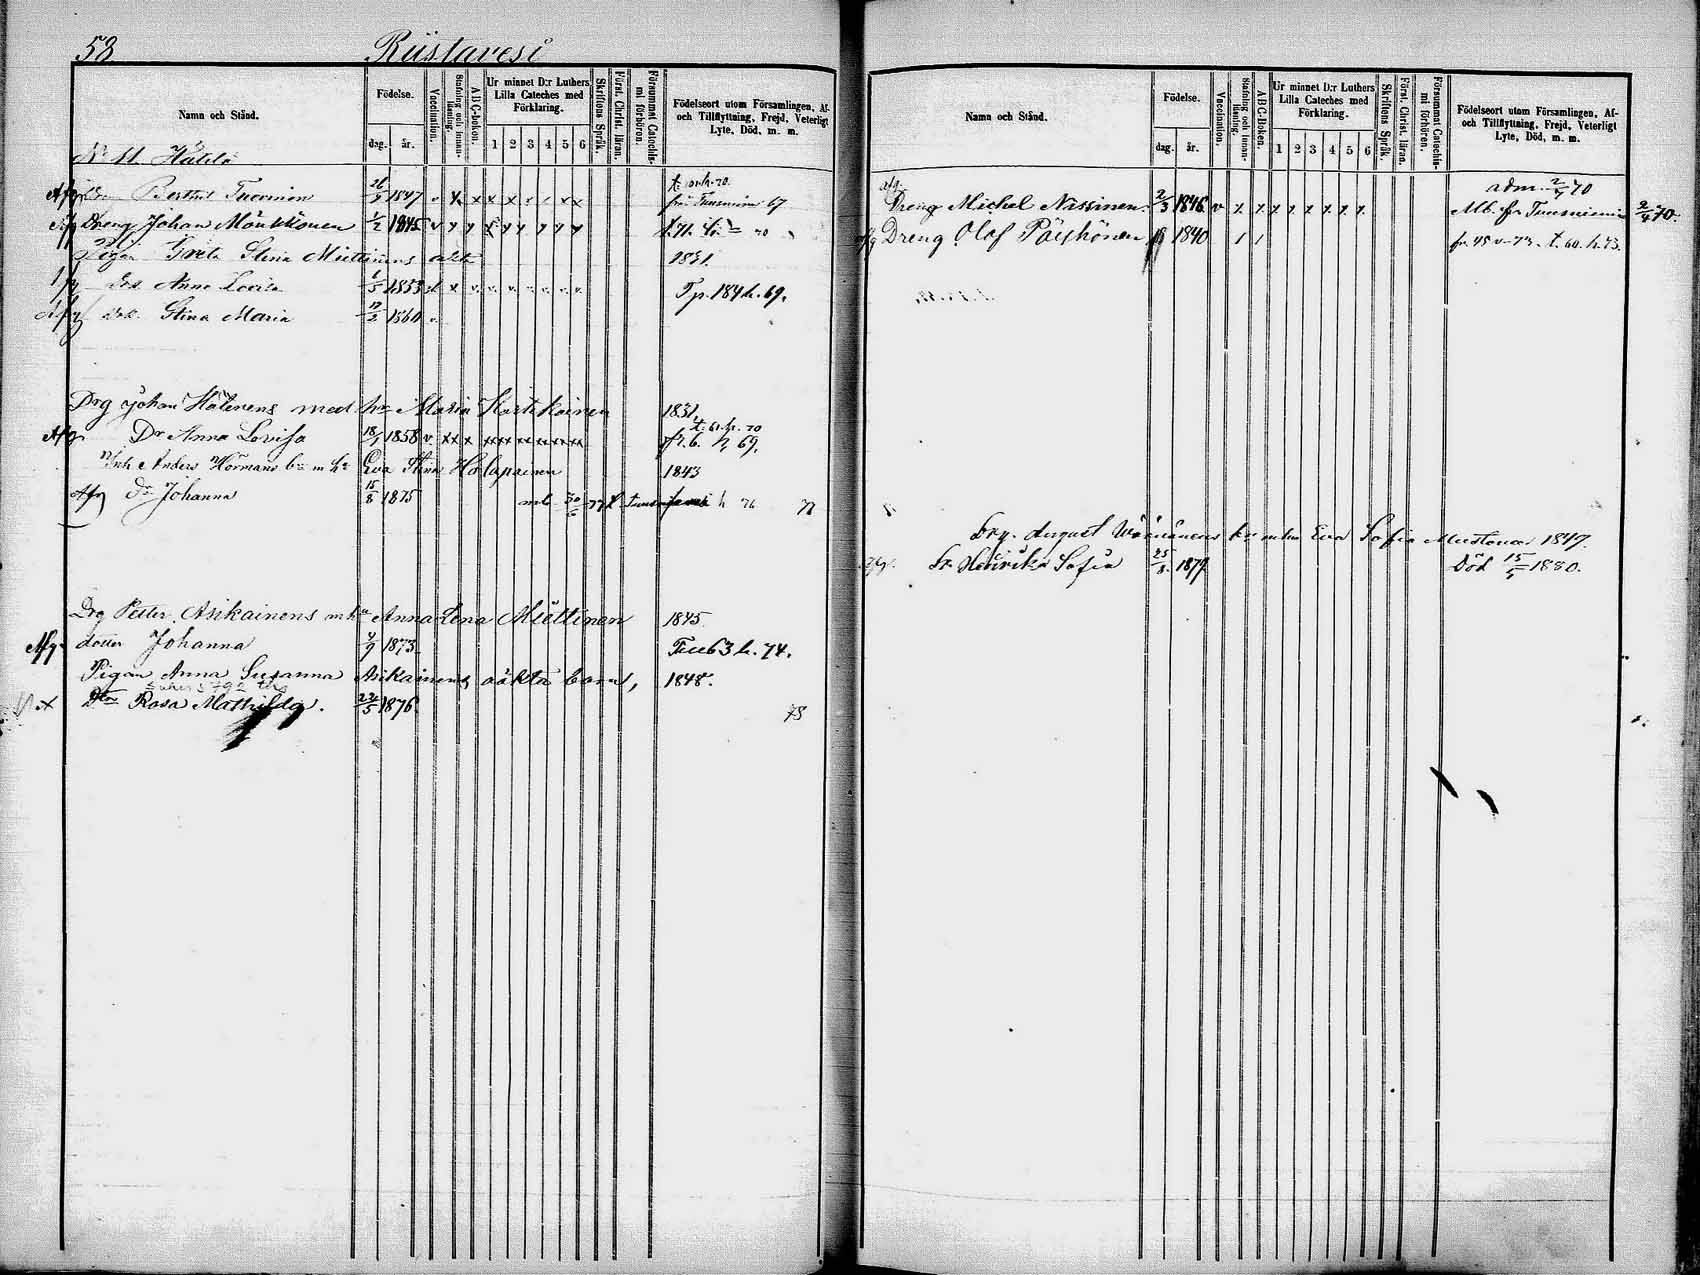 58 Riistavesi
Namn och Stånd.
Födelse.
dag. år.
Vaccination.
Stafning och innan-läsning.
A B C-boken.
Ur minnet D:r Luthers Lilla Cateches med Förklaring.
1 2 3 4 5 6
Skriftens Språk.
Först. Christ. läran.
Försummat Catechis-mi förhören.
Födelseort utom Församlingen, Af- och Tillflyttning, Frejd, Veterligt Lyte, Död, m. m.
No 11. Hätilä
Berthel Tuominen 26/9 1847 v x x x x x x
fr. Tuusniemi 67
Afg Dreng Johan Mönkkönen 1/2 1845 v y y y y y y y
Pigan Greta Stina Miettinens 1831.
Afg Anna Lovisa 1/5 1853 x v. v. v. v. v. v. T p. 184 h. 69.
Afg dot. Stina Maria 17/2 1860 v.
Drg Johan Hätinens med hu Maria Hartikainen 1831
Afg Dr Anna Lovisa 18/1 1858 v. xx x xx xx x x x x t. 61. h. 70
fr. 6. h 69.
Inh Anders Hörmans b:n m h:u Eva Stina Holapainen 1843
Afg dr Johanna 15/8 1875 mb 30/6 77 t. h 76 77
Drg Petter Asikainens m hu Anna Lena Miettinen 1845
Afg dotter Johanna 4/9 1873 63 h. 74.
Pigan Anna Susanna Asikainens oäkta barn, 1848.
Dtr Rosa Mathilda. 24/5 1876 78
Namn och Stånd.
Födelse.
dag. år.
Vaccination.
Stafning och innan-läsning.
A B C-boken.
Ur minnet D:r Luthers Lilla Cateches med Förklaring.
1 2 3 4 5 6
Skriftens Språk.
Först. Christ. läran.
Försummat Catechis-mi förhören.
Födelseort utom Församlingen, Af- och Tillflyttning, Frejd, Veterligt Lyte, Död, m. m.
afg. adm. 2/4 70
Dreng Michel Nissinen 2/3 1846 v x x x x x x x x Mb. fr Tuusniemi 2/4 70.
afg Dreng Olof Pöyhönen 1840 / / fr. 45 v-73. t. 60. h. 73.
Drg. August Väänänens hu Eva Sofia Mustonen 1847.
Afg. dr Henrika Sofia 25/8 1879 Död 15/4 1880.